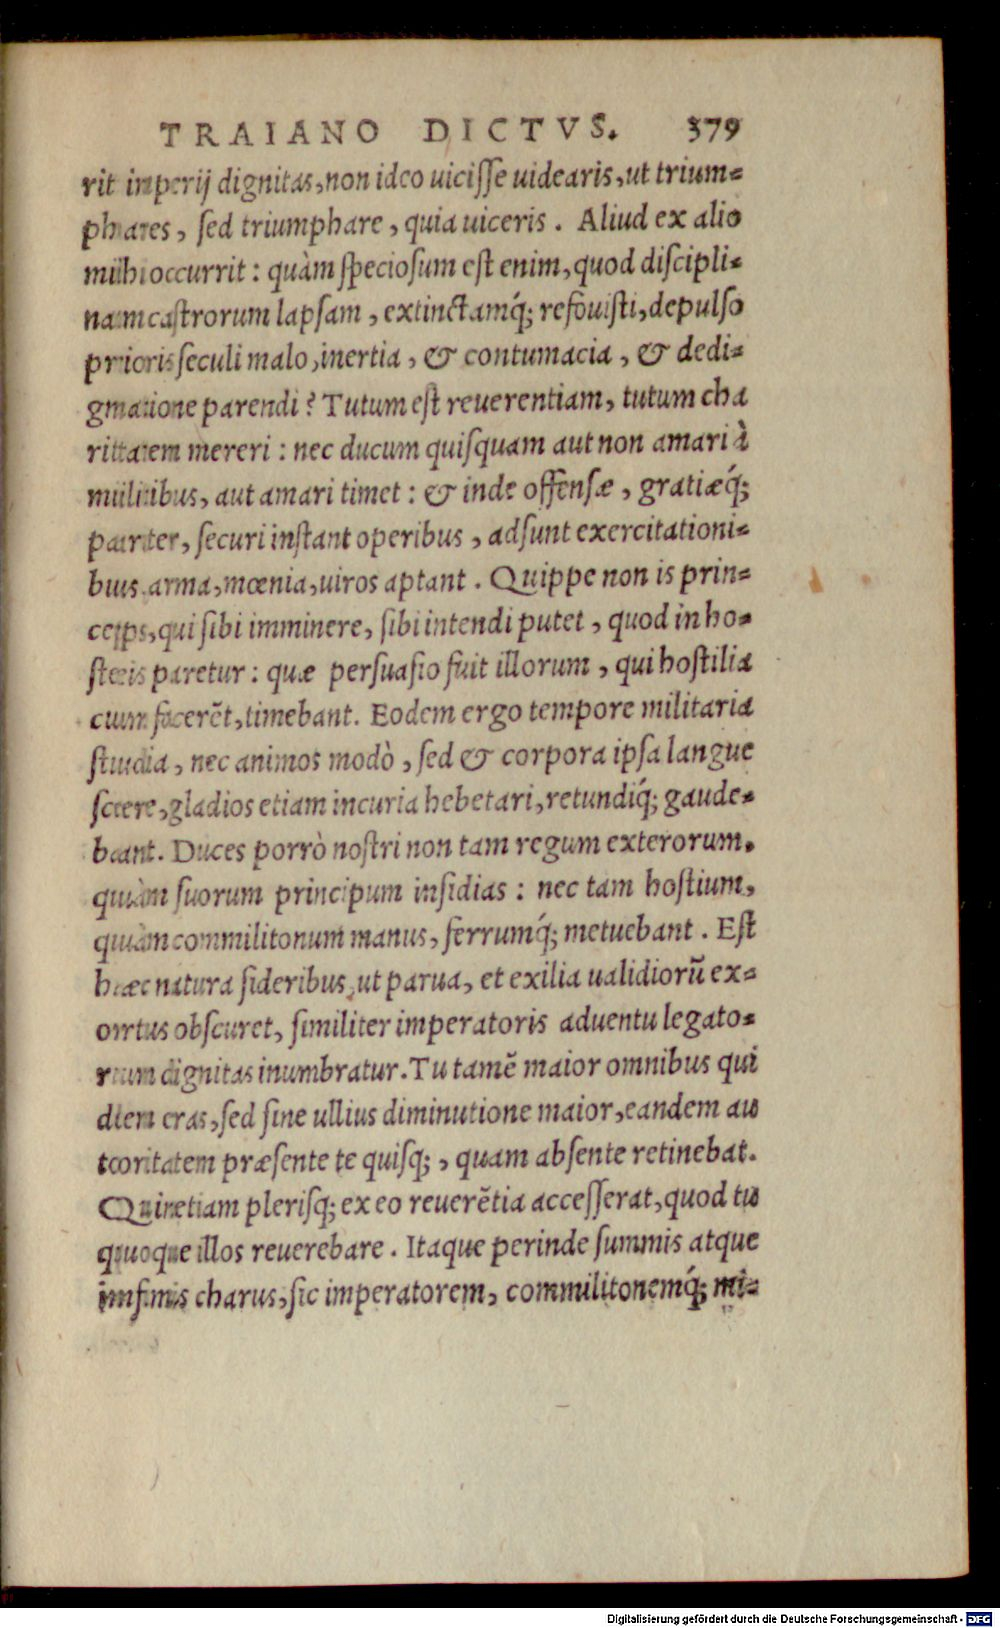 TRAIANO DICTVS. 379
rit imperij dignitas, non ideo uicisse uidearis, ut trium-
phares, sed triumphare, quia uiceris. Aliud ex alio
mihi occurrit: quàm speciosum est enim, quod discipli-
nam castrorum lapsam, extinctamq́; refouisti, depulso
prioris seculi malo, inertia, & contumacia, & dedi-
gnatione parendi? Tutum est reuerentiam, tutum cha
ritatem mereri: nec ducum quisquam aut non amari à
militibus, aut amari timet: & inde offensæ, gratiæq́;
pariter, securi instant operibus, adsunt exercitationi-
bus arma, mœnia, uiros aptant. Quippe non is prin-
ceps, qui sibi imminere, sibi intendi putet, quod in ho-
steis paretur: quæ persuasio fuit illorum, qui hostilia
cum facerẽt, timebant. Eodem ergo tempore militaria
studia, nec animos modò, sed & corpora ipsa langue
scere, gladios etiam incuria hebetari, retundiq́; gaude-
bant. Duces porrò nostri non tam regum exterorum.
quàm suorum principum insidias: nec tam hostium,
quàm commilitonum manus, ferrumq́; metuebant. Est
hæc natura sideribus, ut parua, et exilia ualidiorũ ex-
ortus obscuret, similiter imperatoris aduentu legato-
rum dignitas inumbratur. Tu tamẽ maior omnibus qui
dem eras, sed sine ullius diminutione maior, eandem au
toritatem præsente te quisq;, quam absente retinebat.
Quin etiam plerisq; ex eo reuerẽtia accesserat, quod tu
quoque illos reuerebare. Itaque perinde summis atque
infimis charus, sic imperatorem, commilitonemq́; mi-
Digitalisierung gefördert durch die Deutsche Forschungsgemeinschaft - DFG